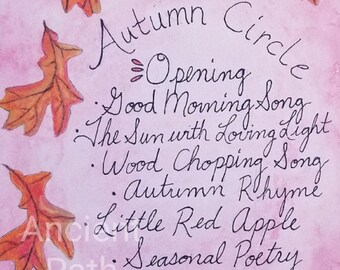 Autumn Circle
Opening
• Good Morning Song
• The Sun with Loving Light
• Wood Chopping Song
• Autumn Rhyme
Little Red Apple
• Seasonal Poetry
Ancient
Path